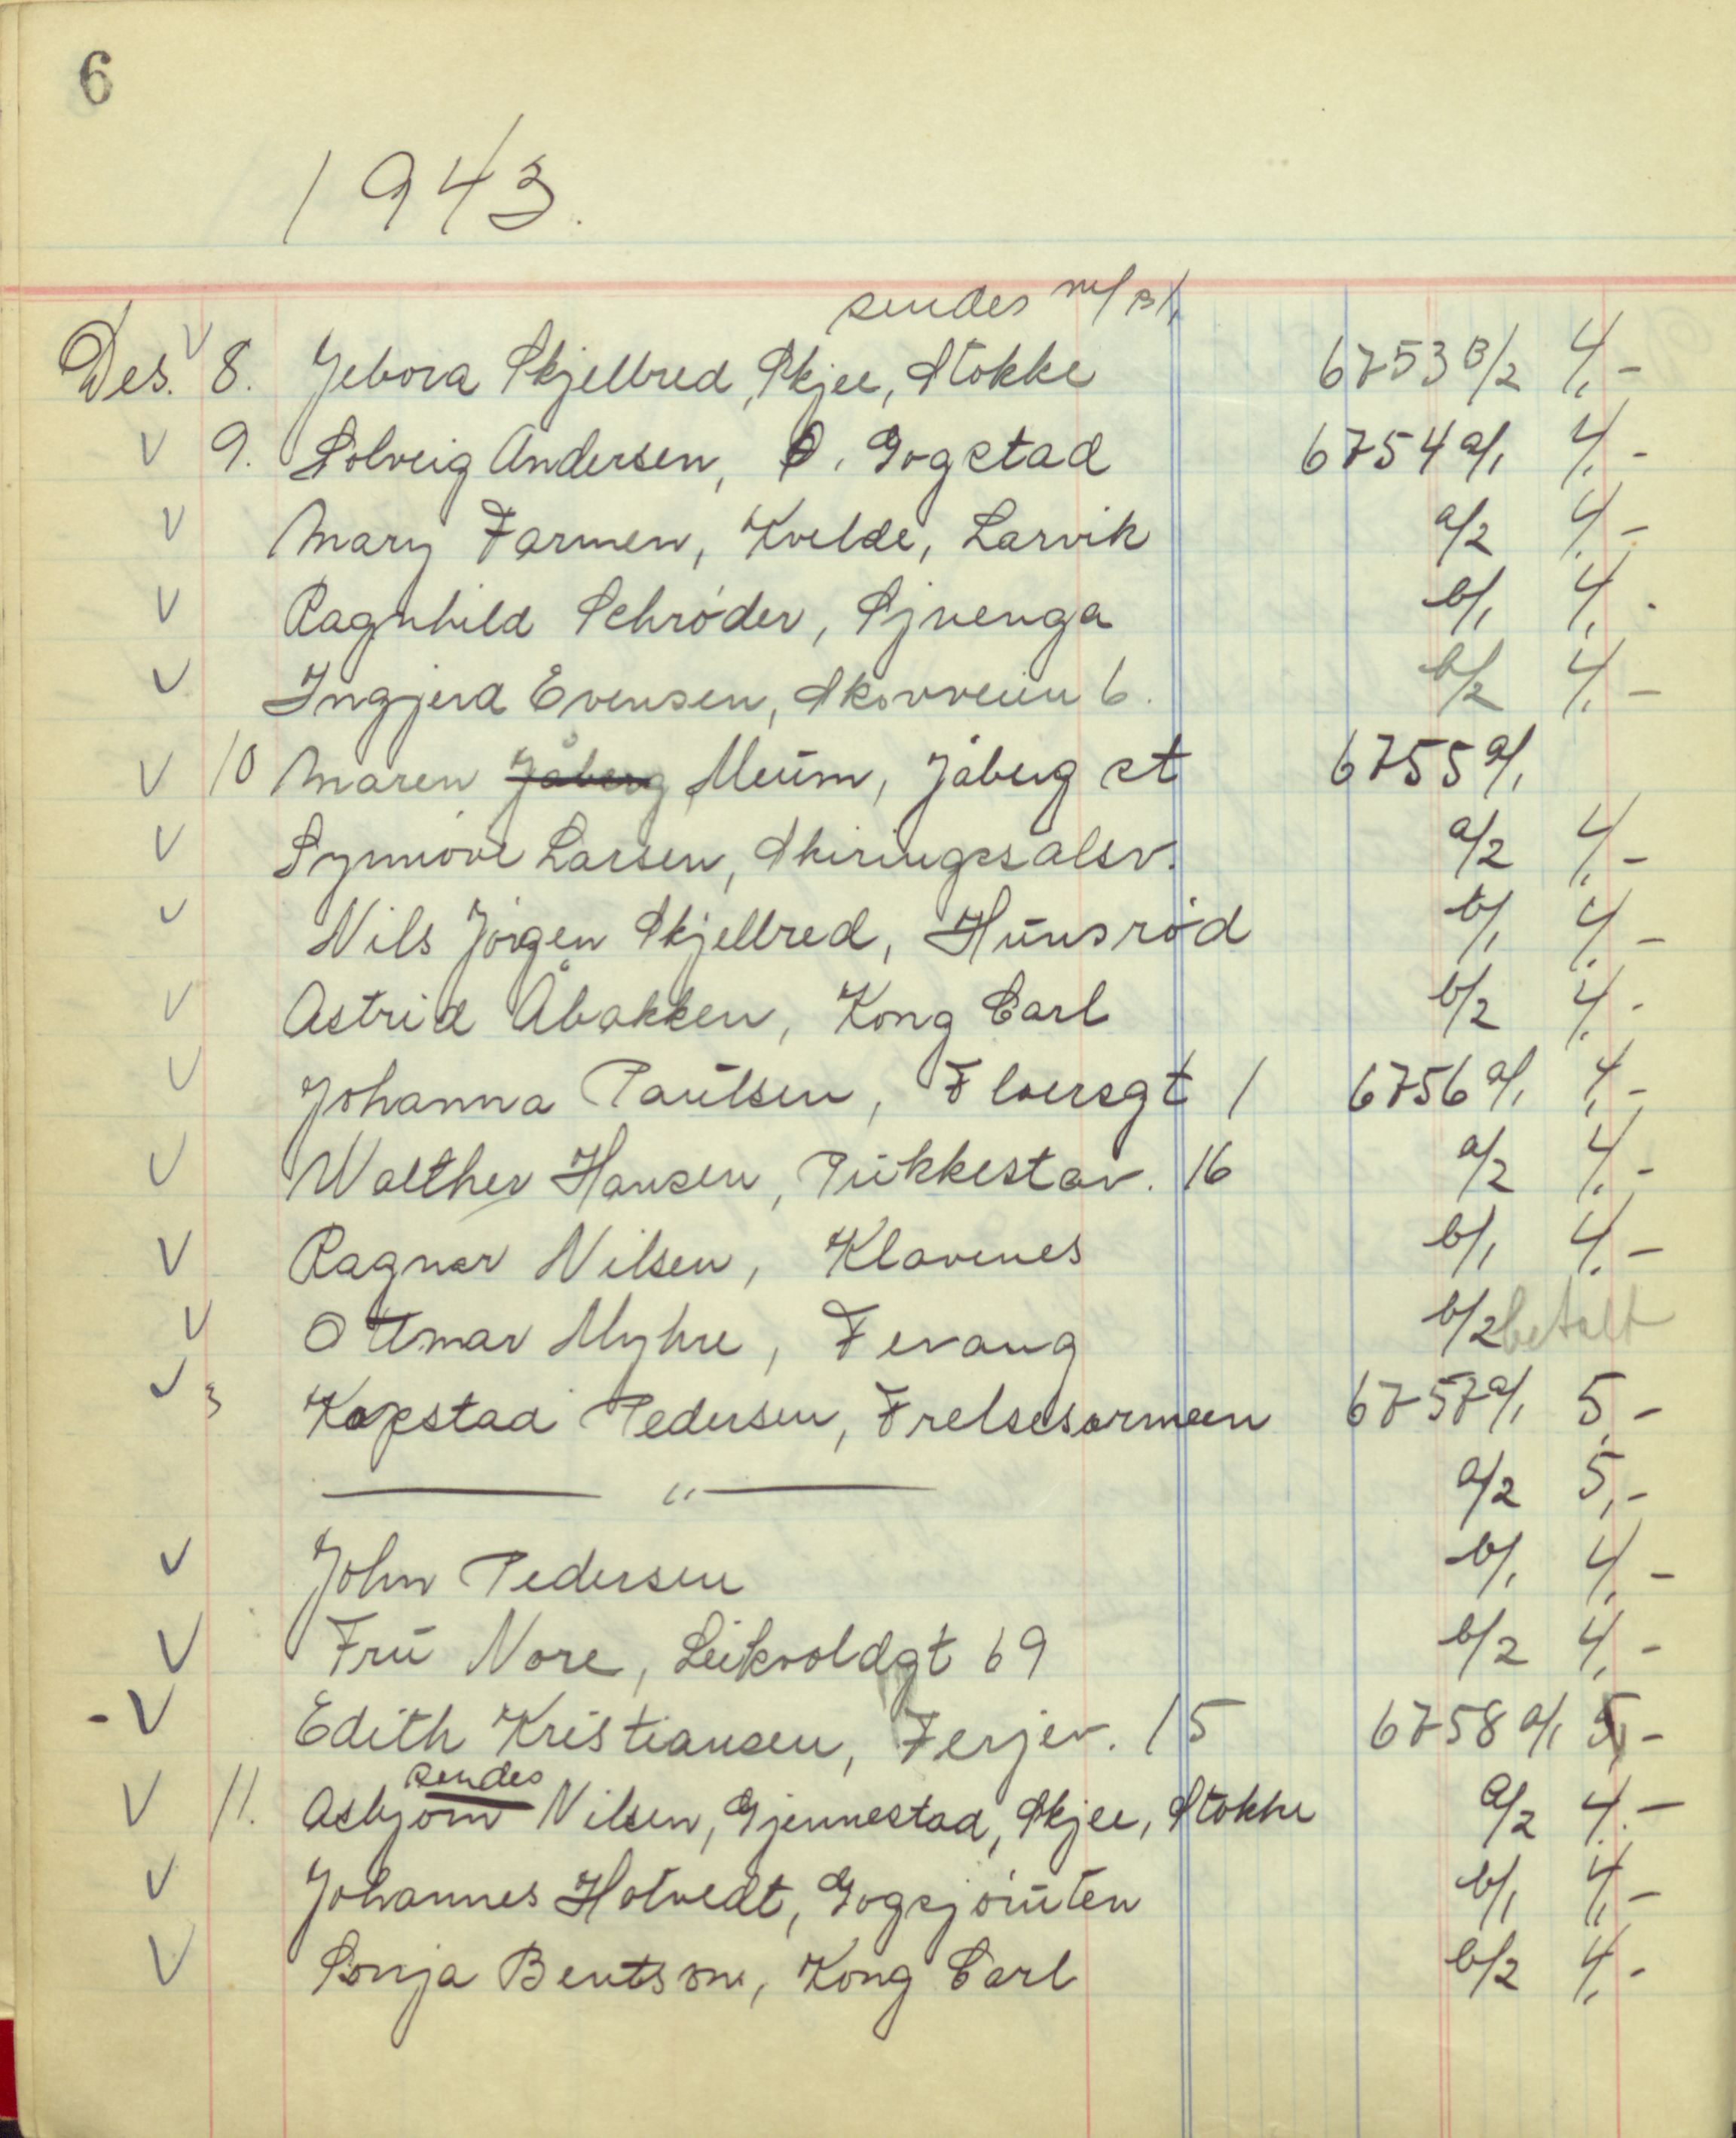 6
1943.
sendes m/ B/1
Des. V 8. Jebora Skjelbred, Skjee, Stokke 6753 B/2 4,-
V 9. Solveig Andersen, Ø. Gogstad 6754 a/1 4,-
V Mary Farmen, Kvelde, Larvik a/2 4,-
V Ragnhild Schrøder, Sjuenga b/1 4,-
V Ingjerd Evensen, Skovveien 6. b/2 4,-
V 10 Maren Jåberg Meum, Jåberg st 6755 a/1
V Synnøve Larsen, Skiringssalsv. a/2 4,-
V Nils Jørgen Skjelbred, Hunsrød b/1 4,-
V Astrid Åbakken, Kong Carl b/2 4,-
V Johanna Paulsen, Floersgt 1 6756 a/1 4,-
V Walther Hansen, Pukkestav. 16 a/2 4,-
V Ragnar Nilsen, Klavenes b/1 4,-
V Ottmar Myhre, Fevang b/2 betalt
V 3 Kopstad Pedersen, Frelsesarmeen 6757 a/1 5,-
— " — a/2 5,-
V John Pedersen b/1 4,-
V Fru Nore, Leikvoldgt 69 b/2 4,-
- V Edith Kristiansen, Ferjev. 15 6758 a/1 5,-
sendes
V 11. Asbjørn Nilsen, Gjennestad, Skjee, Stokke a/2 4,-
V Johannes Hotvedt, Gogsjøruten b/1 4,-
V Sonja Bentson, Kong Carl b/2 4,-